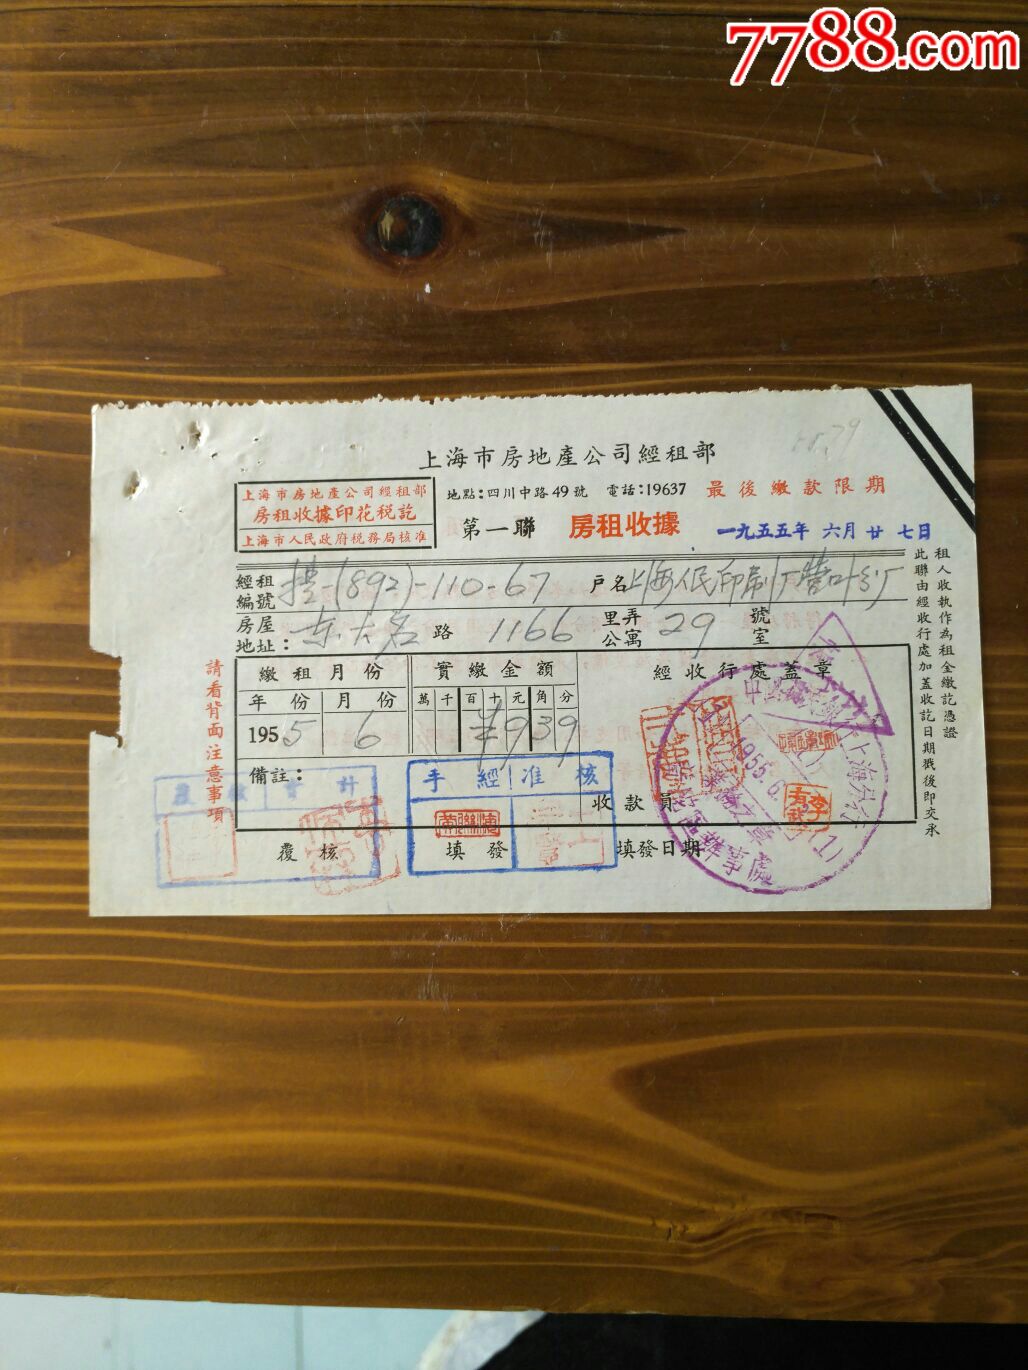 7788.com
上海市房地產公司經租部
上海市房地產公司經租部
房租收據印花税訖
上海市人民政府税務局核准
地點:四川中路49號 電話:19637
最後繳款限期
第一聯 房租收據
一九五五年 六月 廿 七日
經租編號 (892)-110-67
户名 上海人民印刷厂
房屋地址: 东大名 路 1166 里弄公寓 29 號室
繳租月份 實繳金額 經收行處蓋章
年份 月份 萬 千 百 十 元 角 分
1955 6 9 3 9
備註:
收款員
覆核 填發 填發日期
手經 准核
計
請看背面注意事項
租人收執作為租金繳訖憑證
此聯由經收行處加蓋收訖日期戳後即交承
1955.6.
上海分行
辦事處
(1)